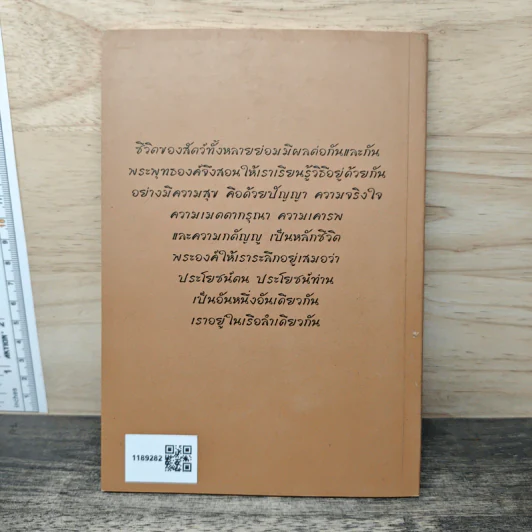 ชีวิตของสัตว์ทั้งหลายย่อมมีผลต่อกันและกัน
พระพุทธองค์จึงสอนให้เราเรียนรู้วิธีอยู่ด้วยกัน
อย่างมีความสุข คือด้วยปัญญา ความจริงใจ
ความเมตตากรุณา ความเคารพ
และความกตัญญู เป็นหลักชีวิต
พระองค์ให้เราระลึกอยู่เสมอว่า
ประโยชน์ตน ประโยชน์ท่าน
เป็นอันหนึ่งอันเดียวกัน
เราอยู่ในเรือลำเดียวกัน
1189282